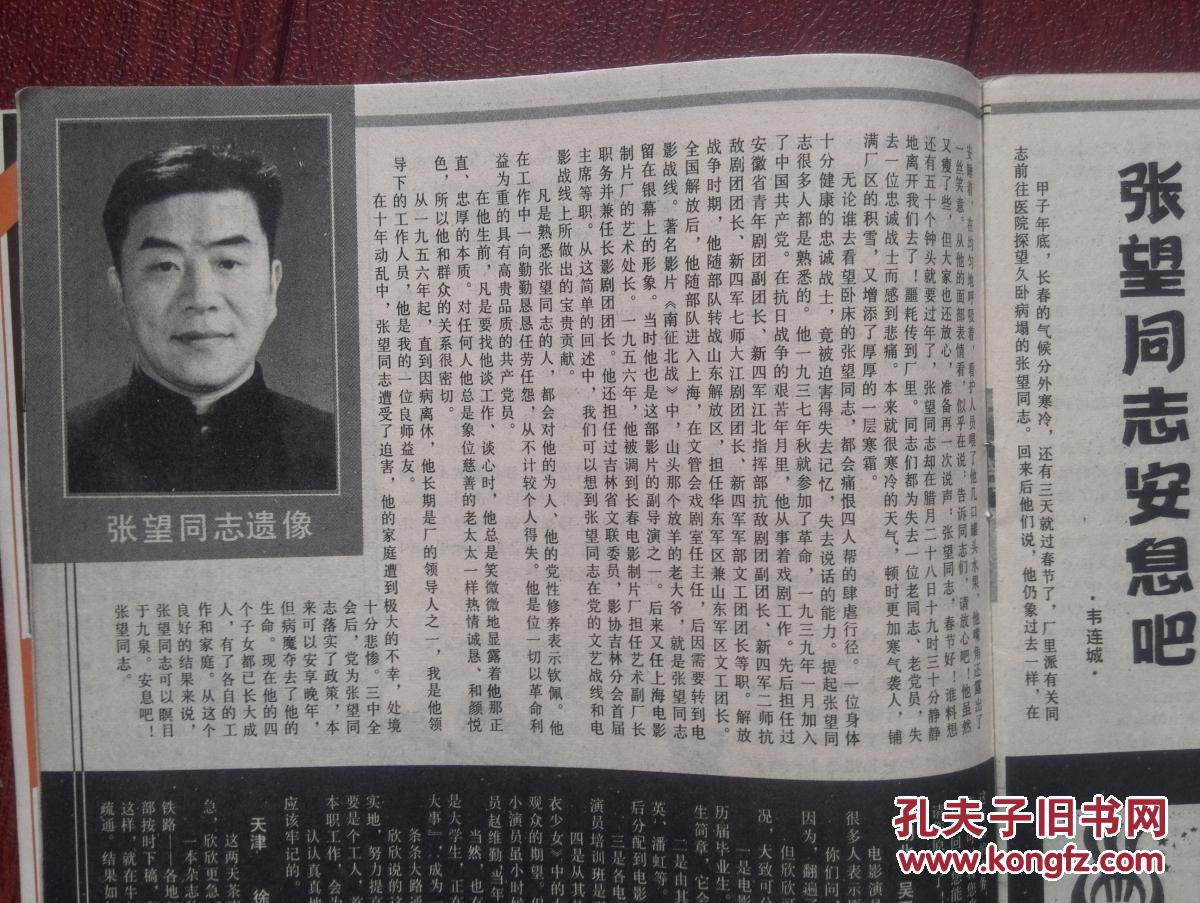 张望同志安息吧
·韦连城·
甲子年底，长春的气候分外寒冷，还有三天就过春节了，厂里派有关同
志前往医院探望久卧病塌的张望同志。回来后他们说，他仍象过去一样，在
安睡着，在均匀地呼吸着，看护人员喂了他几口罐头水果，他嘴角还露出了
一丝笑意。从他的面部表情看，似乎在说：告诉同志们，请放心吧！他虽然
又瘦了些，但大家也还放心，准备再一次说声：张望同志，春节好！谁料想
还有五十个钟头就要过年了，张望同志却在腊月二十八日十九时三十分静静
地离开我们去了！噩耗传到厂里。同志们都为失去一位老同志、老党员，失
去一位忠诚战士而感到悲痛。本来就很寒冷的天气，顿时更加寒气袭人，铺
满厂区的积雪，又增添了厚厚的一层寒霜。
无论谁去看望卧床的张望同志，都会痛恨四人帮的肆虐行径。一位身体
十分健康的忠诚战士，竟被迫害得失去记忆，失去说话的能力。提起张望同
志很多人都是熟悉的。他一九三七年秋就参加了革命，一九三九年一月加入
了中国共产党。在抗日战争的艰苦年月里，他从事着戏剧工作。先后担任过
安徽省青年剧团副团长、新四军江北指挥部抗敌剧团副团长、新四二师抗
敌剧团团长、新四军七师大江剧团团长、新四军军部文工团团长等职。解放
战争时期，他随部队转战山东解放区，担任华东军区兼山东军区文工团长。
全国解放后，他随部队进入上海，在文管会戏剧室任主任，后因需要转到电
影战线。著名影片《南征北战》中，山头那个放羊的老大爷，就是张望同志
留在银幕上的形象。当时他也是这部影片的副导演之一。后来又任上海电影
制片厂的艺术处长。一九五六年，他被调到长春电影制片厂担任艺术副厂长
职务并兼任长影剧团团长。他还担任过吉林省文联委员，影协吉林分会首届
主席等职。从这简单的回述中，我们可以想到张望同志在党的文艺战线和电
影战线上所做出的宝贵贡献。
凡是熟悉张望同志的人，都会对他的为人，他的党性修养表示钦佩。他
在工作中一向勤勤恳恳任劳任怨，从不计较个人得失。他是位一切以革命利
益为重的具有高贵品质的共产党员。
在他生前，凡是要找他谈工作、谈心时，他总是笑微微地显露着他那正
直、忠厚的本质。对任何人他总是象位慈善的老太太一样热情诚恳，和颜悦
色，所以他和群众的关系很密切。
从一九五六年起，直到因病离休，他长期是厂的领导人之一，我是他领
导下的工作人员，他是我的一位良师益友。
在十年动乱中，张望同志遭受了迫害，他的家庭遭到极大的不幸，处境
十分悲惨。三中全
会后，党为张望同
志落实了政策，本
来可以安享晚年，
但病魔夺去了他的
生命。现在他的四
个子女都已长大成
人，有了各自的工
作和家庭。从这个
良好的结果来说，
张望同志可以瞑目
于九泉。安息吧！
张望同志。
张望同志遗像
电影演
很多人表示
你们问，
因为，翻遍了
但欣欣
况，大致可分
一是电影
历届毕业生。
生简章，它会
二是由其
英、潘虹等。
后分配到电影
三是各电
演员培训班是
四是从其他
衣少女》中的
观众的期望。但
小演员虽小时候
员赵维勤当年
当然，也有
是大学生，正在
大事”，成为一
条条大路通
欣欣说的这
实地，努力提高
要是个工人，首
本职工作，会为
认认真真地
应该牢记的。
天津 徐
这两天茶
急，欣欣更急
一本杂志
铁路——各地
部按时下稿，
这样，就在牛
疏通，结果如
孔夫子旧书网
www.kongfz.com